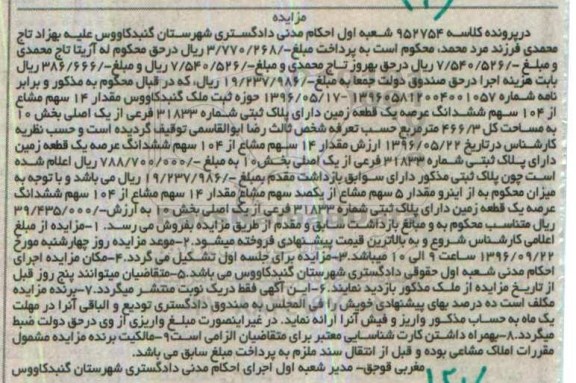 مزایده
درپرونده کلاسه ۹۵۲۷۵۴ شعبه اول احکام مدنی دادگستری شهرستان گنبدکاووس علیه بهزاد تاج
محمدی فرزند مرد محمد، محکوم است به پرداخت مبلغ-/۳/۷۷۰/۲۶۸ ریال درحق محکوم له آزیتا تاج محمدی
و مبلغ -/۷/۵۴۰/۵۲۶ ریال درحق بهروز تاج محمدی و مبلغ-/۷/۵۴۰/۵۲۶ ریال و مبلغ-/۳۸۶/۶۶۶ ریال
بابت هزینه اجرا درحق صندوق دولت جمعا به مبلغ-/۱۹/۲۳۷/۹۸۶ ریال، که در قبال محکوم به مذکور و برابر
نامه شماره ۱۳۹۶۵۸۱۲۰۰۴۰۰۱۰۵۷-۱۳۹۶/۰۵/۱۷ حوزه ثبت ملک گنبدکاووس مقدار ۱۴ سهم مشاع
از ۱۰۴ سهم ششدانگ عرصه یک قطعه زمین دارای پلاک ثبتی شماره ۳۱۸۳۳ فرعی از یک اصلی بخش ۱۰
به مساحت کل ۴۶۶/۳ مترمربع حسب تعرفه شخص ثالث رضا ابوالقاسمی توقیف گردیده است و حسب نظریه
کارشناس درتاریخ ۱۳۹۶/۰۵/۲۲ ارزش مقدار ۱۴ سهم مشاع از ۱۰۴ سهم ششدانگ عرصه یک قطعه زمین
دارای پلاک ثبتی شماره ۳۱۸۳۳ فرعی از یک اصلی بخش۱۰ به مبلغ -/۷۸۸/۷۰۰/۰۰۰ ریال اعلام شده
است چون پلاک ثبتی مذکور دارای سوابق بازداشت مقدم بمبلغ-/۱۹/۲۳۷/۹۸۶ ریال می باشد و با توجه به
میزان محکوم به از اینرو مقدار ۵ سهم مشاع از یکصد سهم مشاع مقدار ۱۴ سهم مشاع از ۱۰۴ سهم ششدانگ
عرصه یک قطعه زمین دارای پلاک ثبتی شماره ۳۱۸۳۳ فرعی از یک اصلی بخش ۱۰ به ارزش-/۳۹/۴۳۵/۰۰۰
ریال متناسب محکوم به و مبالغ بازداشت سابق و مقدم از طریق مزایده بفروش می رسد. ۱-مزایده از مبلغ
اعلامی کارشناس شروع و به بالاترین قیمت پیشنهادی فروخته میشود.۲-موعد مزایده روز چهارشنبه مورخ
۱۳۹۶/۰۹/۲۲ ساعت ۹ الی ۱۰ میباشد.۳-مزایده برای جلسه اول تشکیل می گردد.۴-مکان مزایده اجرای
احکام مدنی شعبه اول حقوقی دادگستری شهرستان گنبدکاووس می باشد.۵-متقاضیان میتوانند پنج روز قبل
از تاریخ مزایده از ملک مذکور بازدید نمایند.۶-این آگهی فقط دریک نوبت منتشر میگردد.۷-برنده مزایده
مکلف است ده درصد بهای پیشنهادی خویش را فی المجلس به صندوق دادگستری تودیع و الباقی آنرا در مهلت
یک ماه به حساب مذکور واریز و فیش آنرا ارائه نماید. در غیر اینصورت مبلغ واریزی از وی درحق دولت ضبط
میگردد.۸-بهمراه داشتن کارت شناسایی معتبر برای متقاضیان الزامی است۹-مالکیت برنده مزایده مشمول
مقررات املاک مشاعی بوده و قبل از انتقال سند ملزم به پرداخت مبلغ سابق می باشد.
مقربی قوجق- مدیر شعبه اول اجرای احکام مدنی دادگستری شهرستان گنبدکاووس